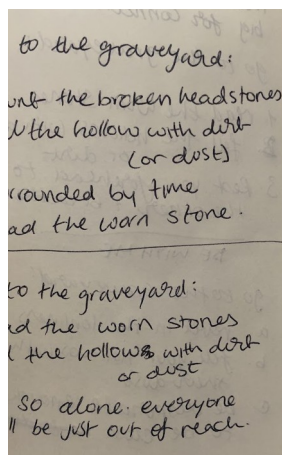 to the graveyard:
unt the broken headstones
the hollow with dirt
(or dust)
rounded by time
ad the worn stone.
to the graveyard:
d the worn stones
the hollows with dirt
or dust
so alone. everyone
ll be just out of reach.